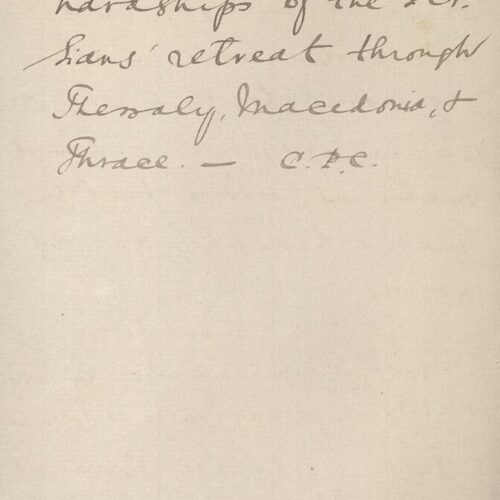 hardships of the Per-
sians' retreat through
Thessaly, Macedonia, &
Thrace. — C.P.C.